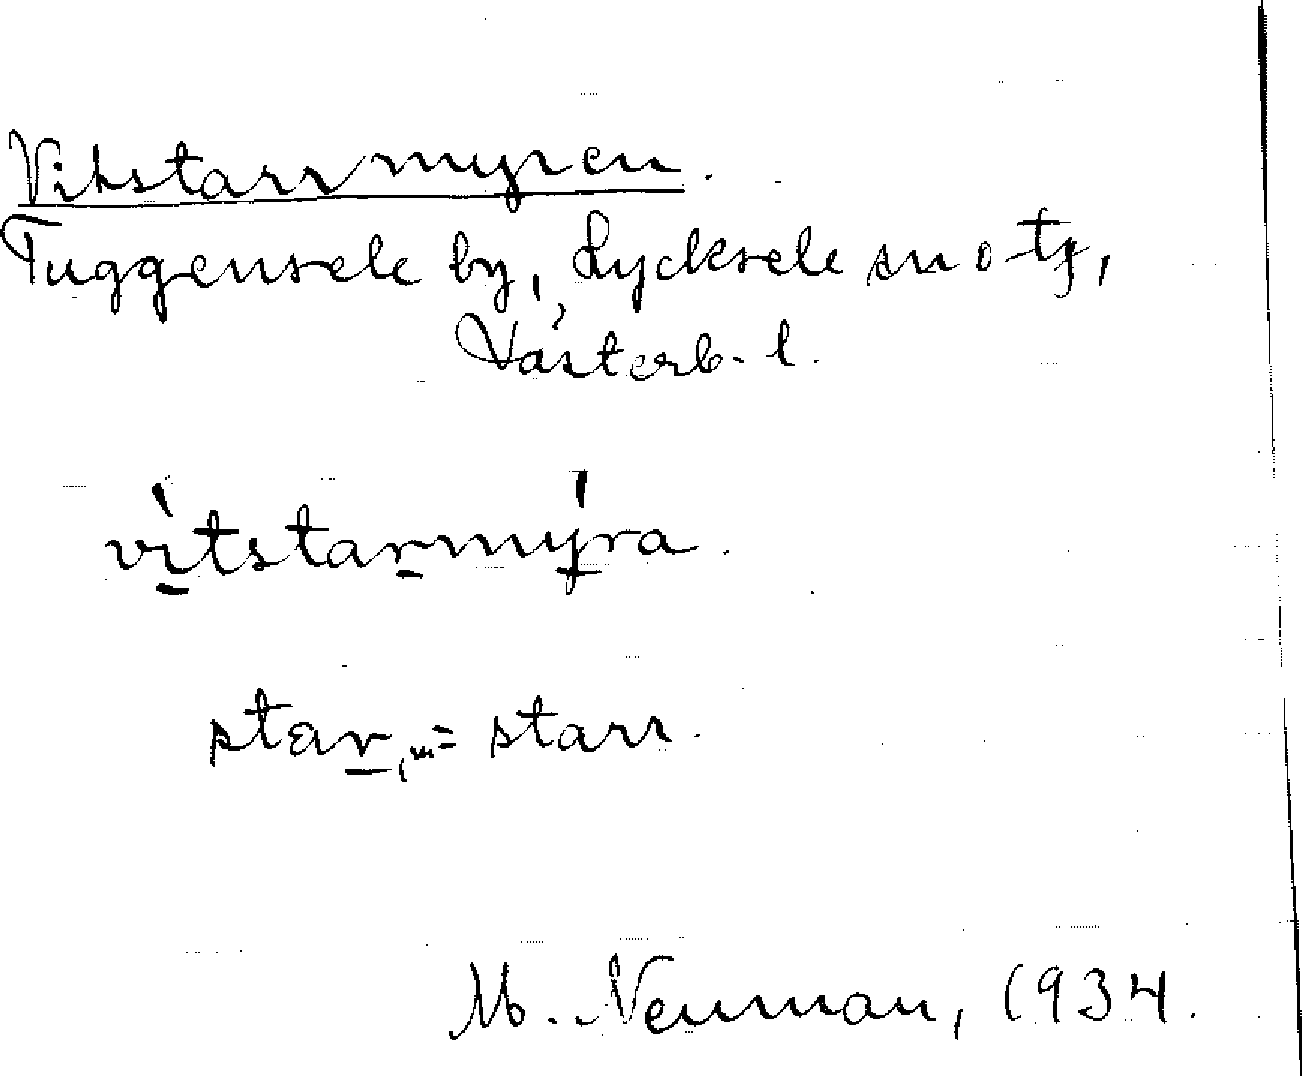 Vitstarrmyren.
Tuggensele by, Lycksele sn o tg,
Västerb. l.
vítstarmýra.
star, m = starr.
M. Neuman, 1934.